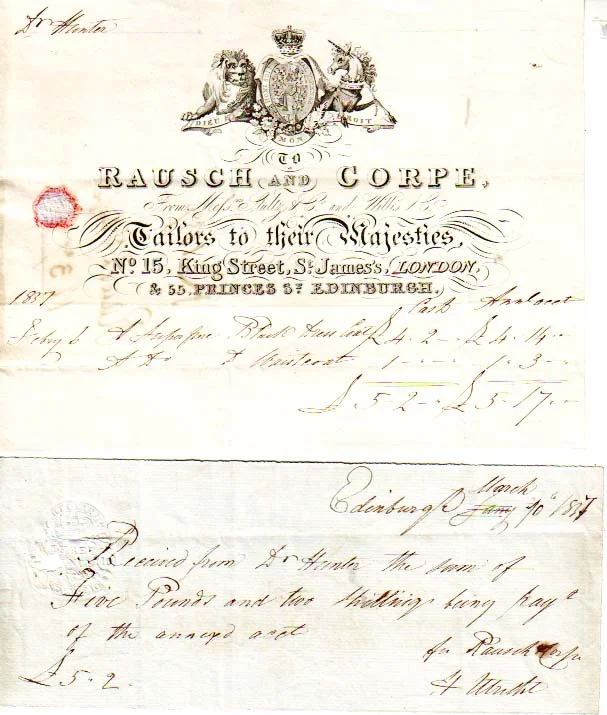 Dr Hunter
DIEU ET
MON
DROIT
TO
RAUSCH AND CORPE,
From Messrs and
Tailors to their Majesties,
No. 15, King Street, St. James's, LONDON,
& 55, PRINCES ST EDINBURGH.
1837 Cash Annl acct
Feby 6 A Superfine Black Dress Coat £ 4. 2 - £ 4. 14 -
A Do Do Waistcoat 1 - - 1. 3 -
£ 5. 2 - £ 5. 17 -
Edinburgh March Jany 10th 1837
Received from Dr Hunter the sum of
Five Pounds and two Shillings being paya
of the annexd acct
£ 5. 2. for Rausch & Corpe